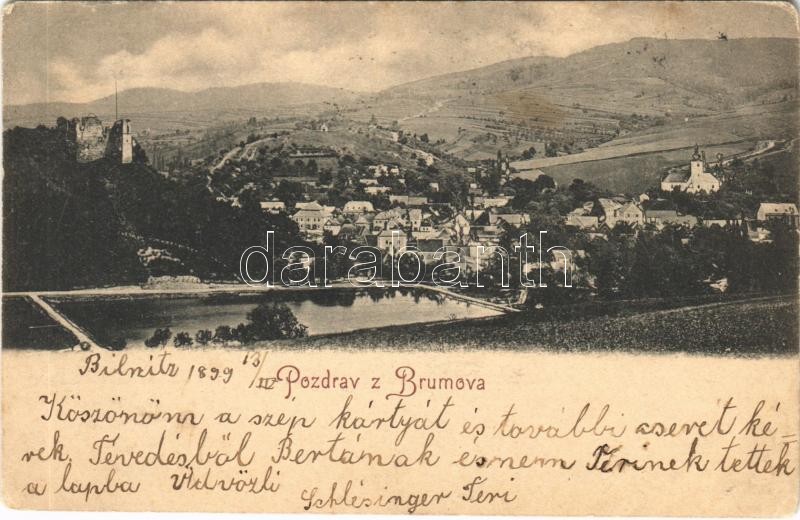 darabanth
Bilnitz 1899 13/III
Pozdrav z Brumova
Köszönöm a szép kártyát és további cseret ké-
rek. Tévedésből Bertának és nem Terinek tettek
a lapba Üdvözli
Schlésinger Teri